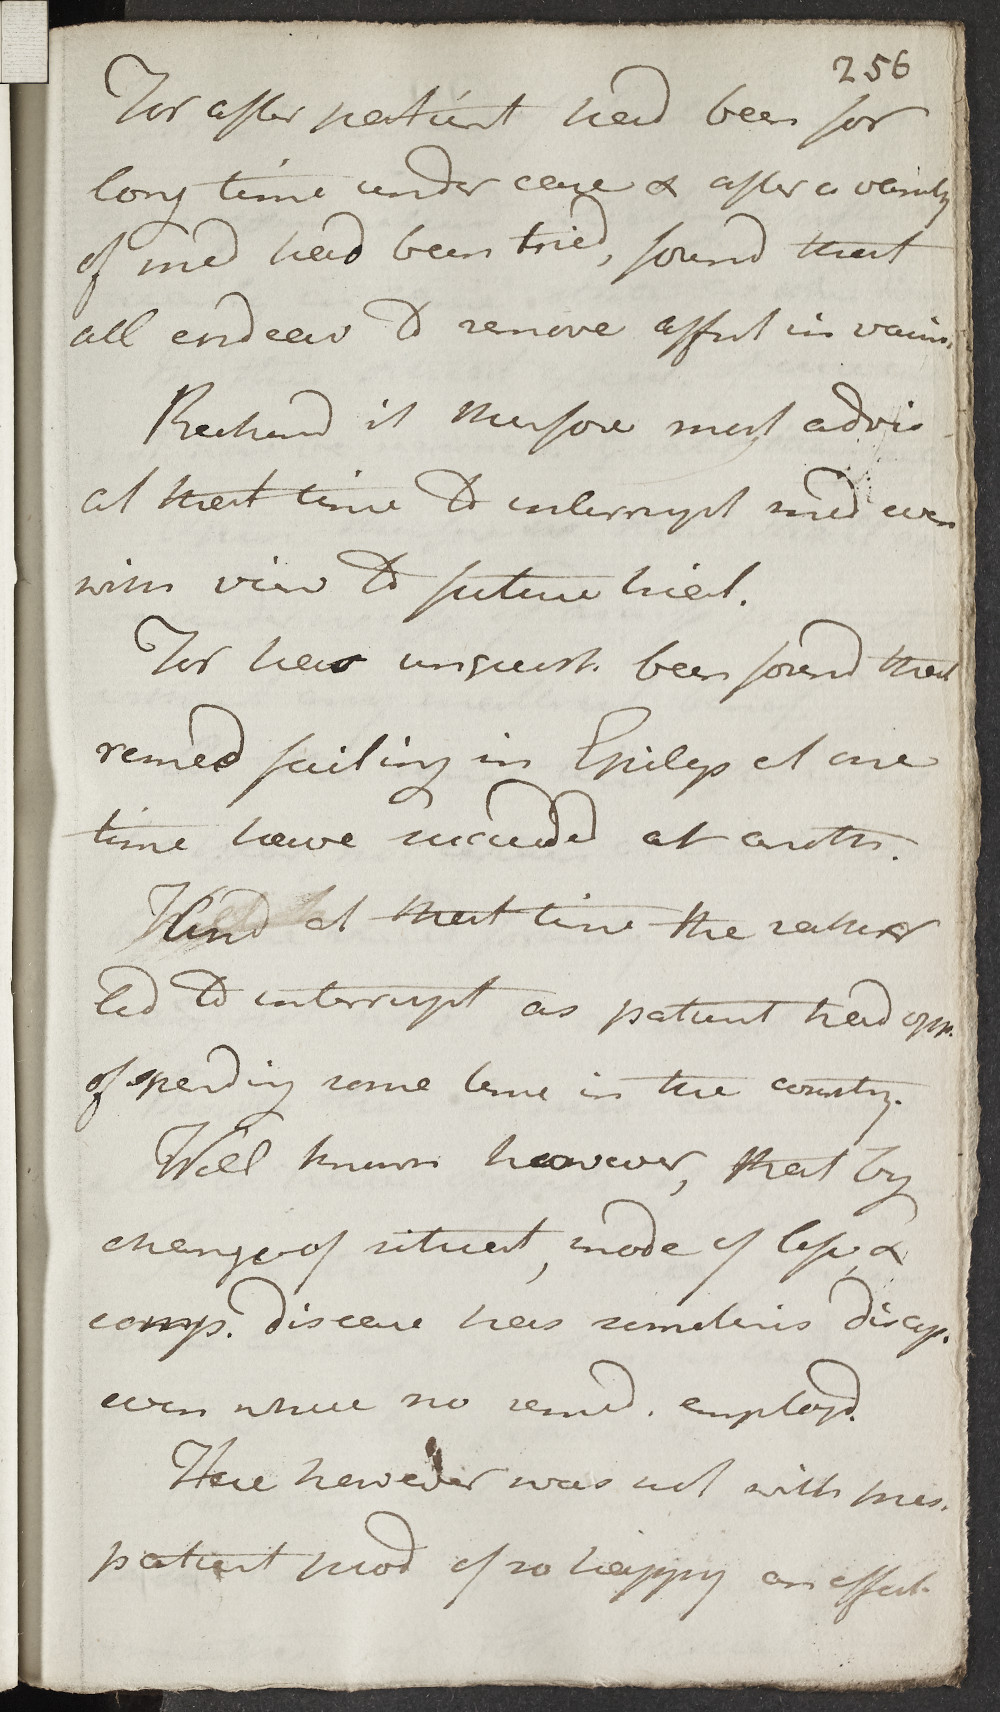 256
For after patient had been for
long time under care & after a variety
of med had been tried, found that
all endeav to remove affect in vain.
Reckend it therefore most advis
at that time to interrupt med even
with view to future trial.
For has unquest. been found that
remed failing in Epileps at one
time have succeeded at anoth.
And at that time the rather
led to interrupt as patient had opp.
of spending some time in the country.
Well known however, that by
change of situat, mode of life, &
comp. disease has sometimes disap.
even where no remed. employd.
Here however was not with pres.
patient prod of so happy an effect.